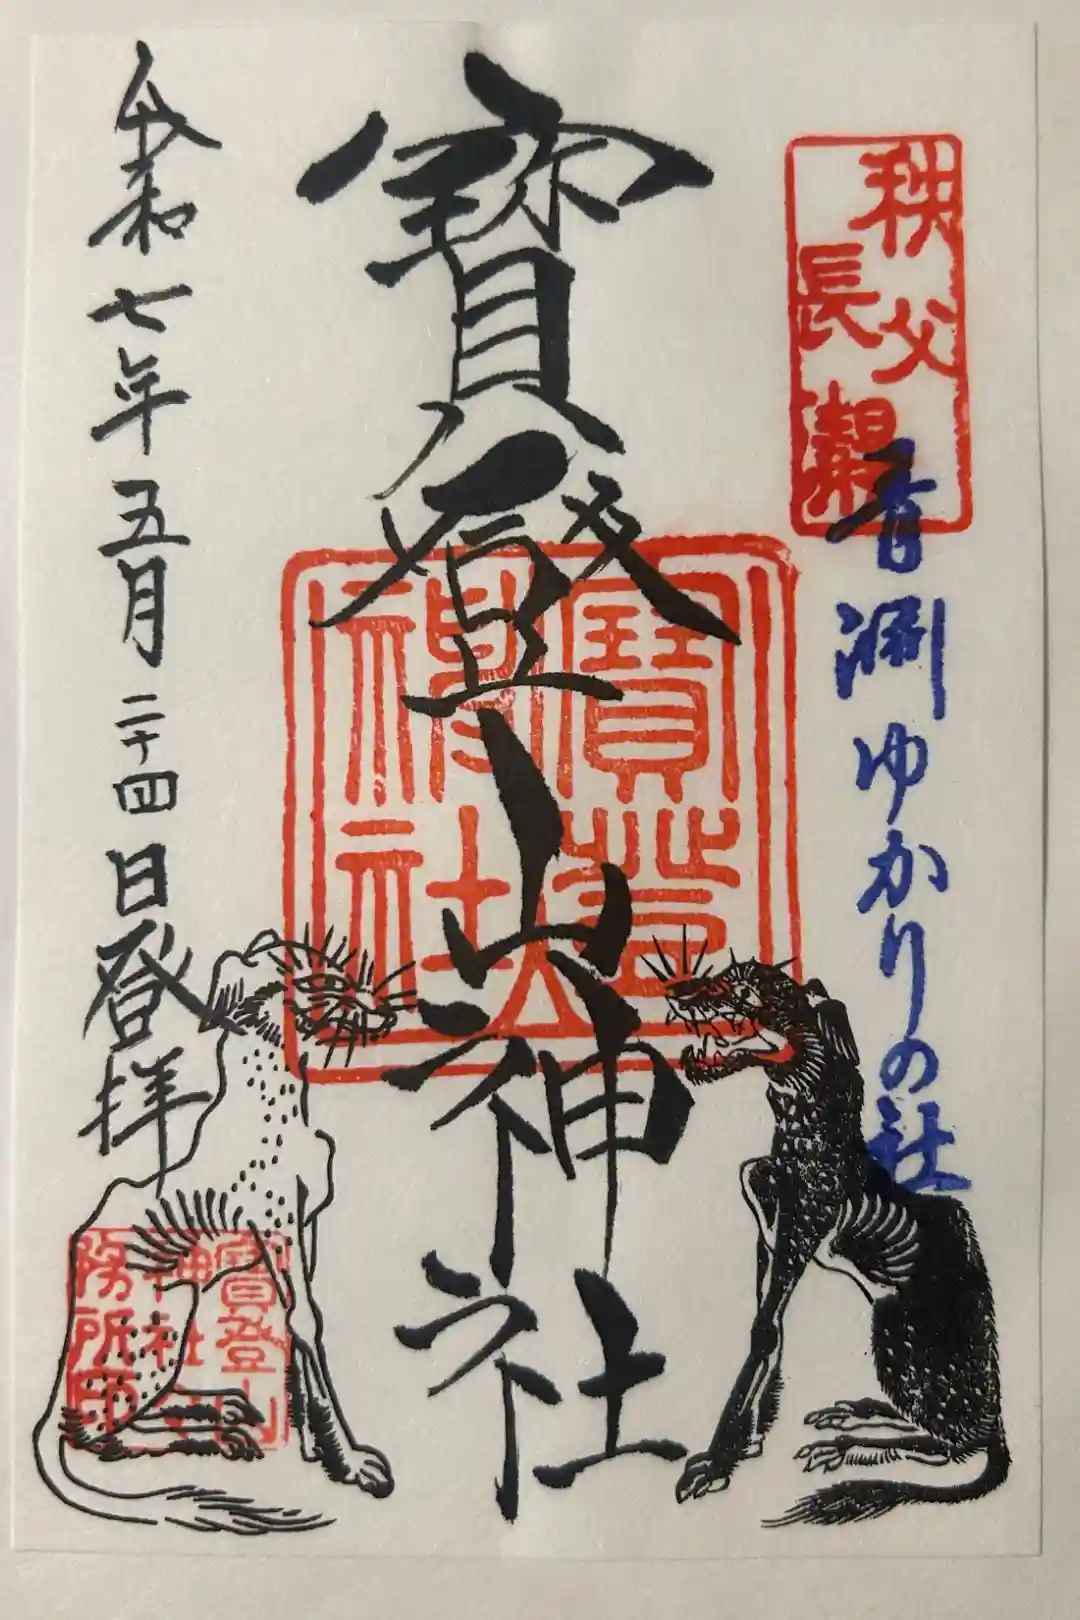 秩父
長瀞
青淵ゆかりの社
寳登山神社
寳登
山神社
令和七年五月二十四日登拝
寳登山
神社
務所印